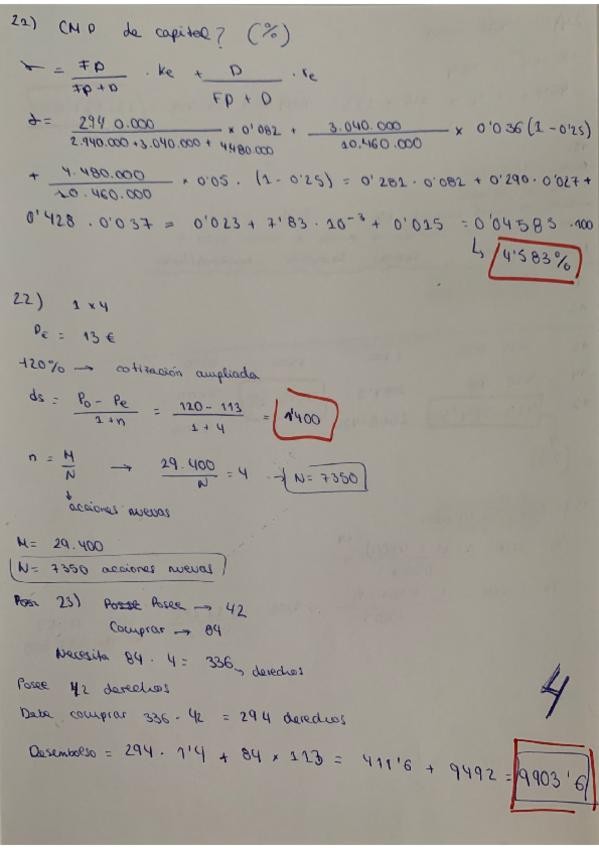 21) CMP de capital? (%)
γ = FP / FP + D · ke + D / FP + D · re
γ = 2940.000 / 2.940.000 + 3.040.000 + 4.480.000 × 0'082 + 3.040.000 / 10.460.000 × 0'036 (1 - 0'25)
+ 4.480.000 / 10.460.000 × 0'05 · (1 - 0'25) = 0'281 · 0'082 + 0'290 · 0'027 +
0'428 · 0'037 = 0'023 + 7'83 · 10⁻³ + 0'015 = 0'04583 · 100
↳ 4'583%
22) 1 × 4
Pe = 13 €
120% → cotización ampliada
ds = Po - Pe / 1 + n = 120 - 113 / 1 + 4 = 1'400
n = M / N → 29.400 / N = 4 → N = 7350
↓
acciones nuevas
M = 29.400
N = 7350 acciones nuevas
23) Posee → 42
Comprar → 84
Necesita 84 · 4 = 336 → derechos
Posee 42 derechos
Debe comprar 336 - 42 = 294 derechos
4
Desembolso = 294 · 1'4 + 84 × 113 = 411'6 + 9492 = 9903'6